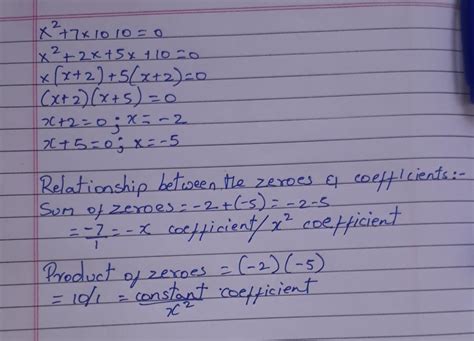 x²+7x1010=0
x²+2x+5x+10=0
x(x+2)+5(x+2)=0
(x+2)(x+5)=0
x+2=0; x=-2
x+5=0; x=-5
Relationship between the zeroes & coefficients:-
Sum of zeroes=-2+(-5)=-2-5
=-7/1=-x coefficient/x² coefficient
Product of zeroes=(-2)(-5)
=10/1=constant coefficient/x²